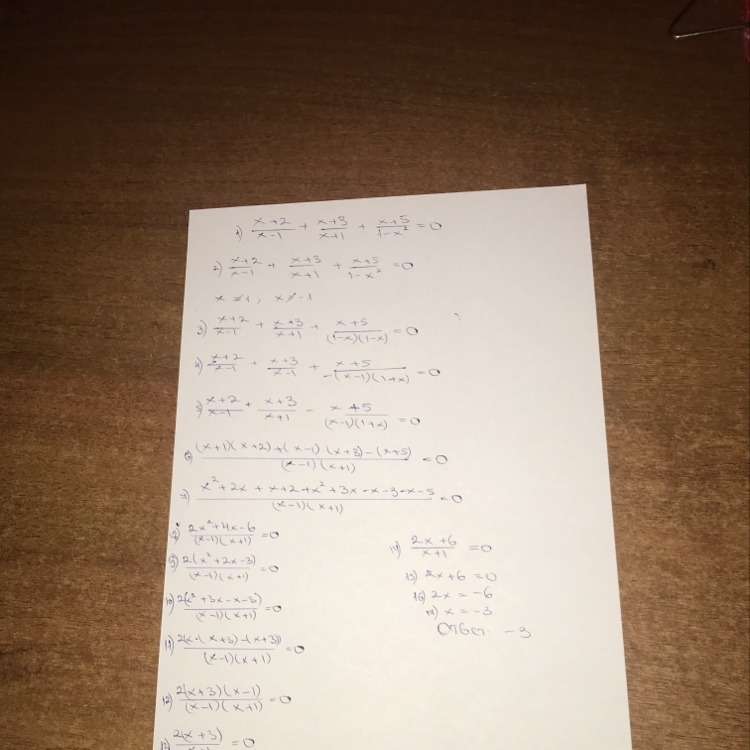 1) (x+2)/(x-1) + (x+3)/(x+1) + (x+5)/(1-x²) = 0
2) (x+2)/(x-1) + (x+3)/(x+1) + (x+5)/(1-x²) = 0
x ≠ 1, x ≠ -1
3) (x+2)/(x-1) + (x+3)/(x+1) + (x+5)/((1-x)(1-x)) = 0
4) (x+2)/(x-1) + (x+3)/(x-1) + (x+5)/(-(x-1)(1+x)) = 0
5) (x+2)/(x-1) + (x+3)/(x+1) - (x+5)/((x-1)(1+x)) = 0
6) ((x+1)(x+2)+(x-1)(x+3)-(x+5))/((x-1)(x+1)) = 0
7) (x²+2x+x+2+x²+3x-x-3-x-5)/((x-1)(x+1)) = 0
8) (2x²+4x-6)/((x-1)(x+1)) = 0
9) 2(x²+2x-3)/((x-1)(x+1)) = 0
10) 2(x²+3x-x-3)/((x-1)(x+1)) = 0
11) 2(x·(x+3)-(x+3))/((x-1)(x+1)) = 0
12) 2(x+3)(x-1)/((x-1)(x+1)) = 0
13) 2(x+3)/(x+1) = 0
14) (2x+6)/(x+1) = 0
15) 2x+6 = 0
16) 2x = -6
17) x = -3
Ответ: -3